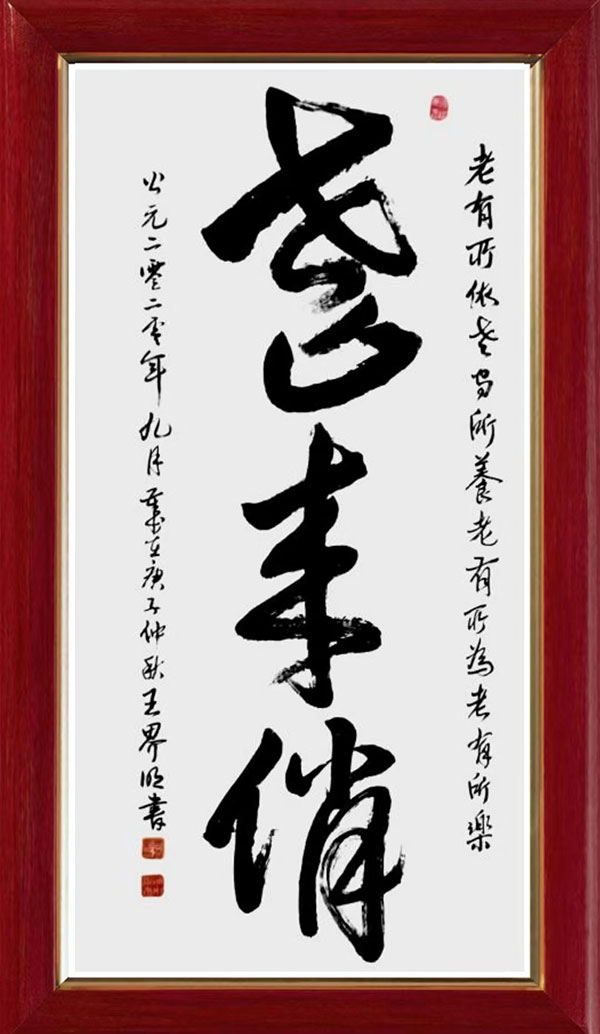 老有所依老有所養老有所為老有所樂
老来俏
公元二零二零年九月歲在庚子仲秋王界明書